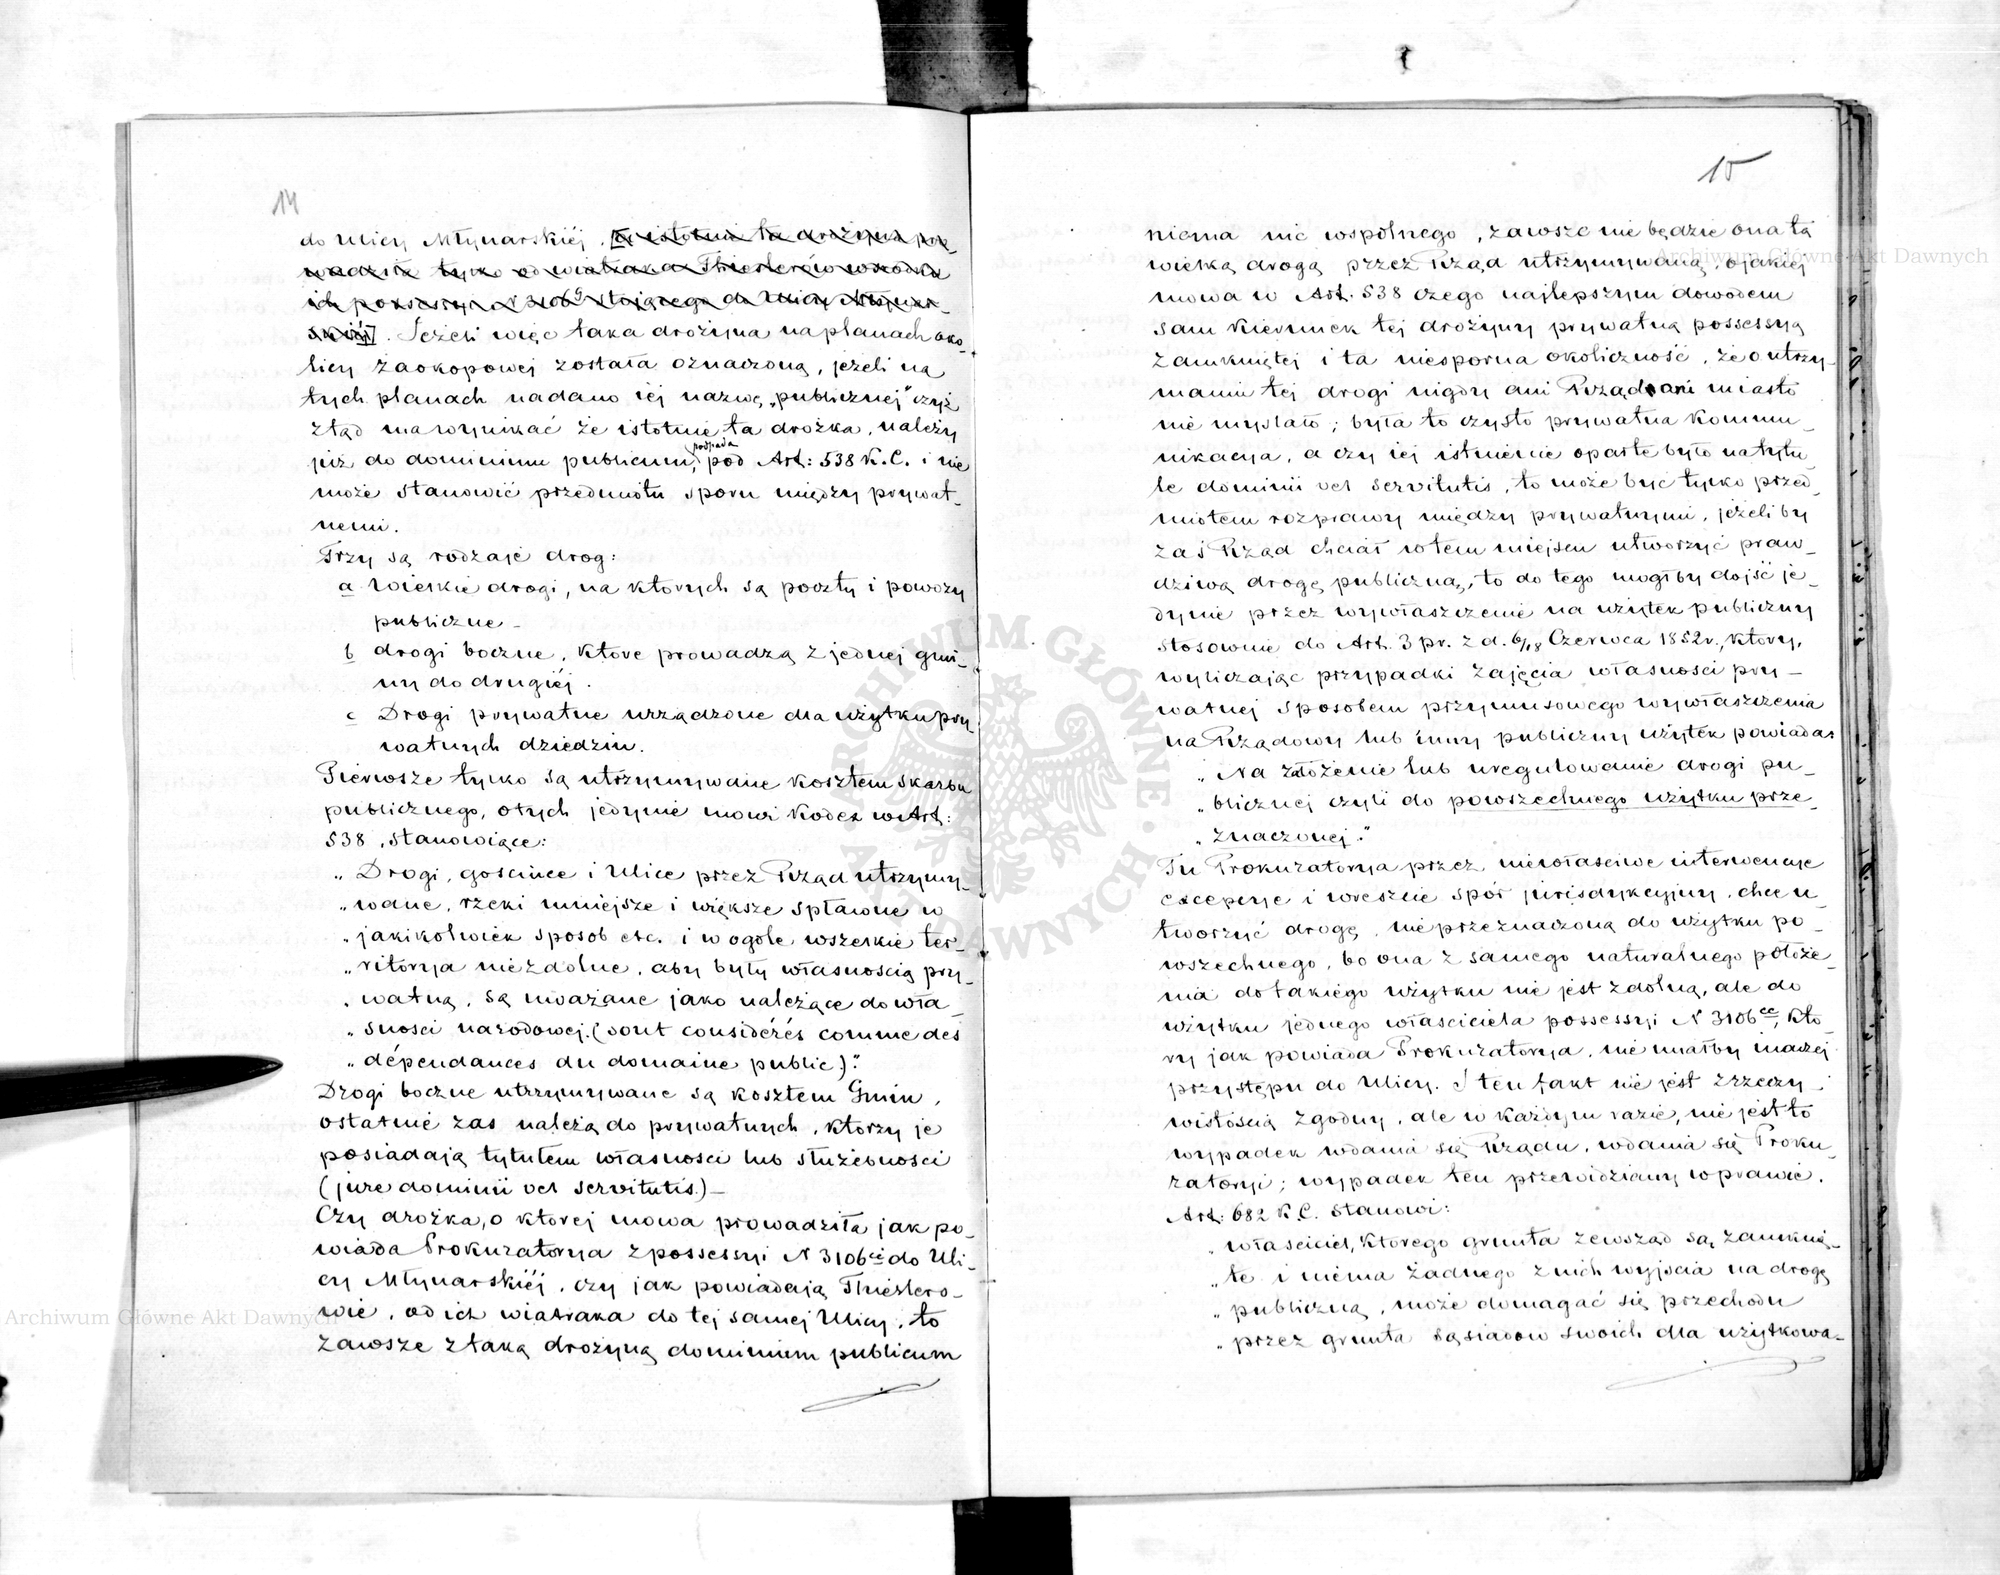 14
do Ulicy Młynarskiéj,
wadziła tylko od wiatraka Thieslerów wśrodku
ich possessyi N 3106 stojącego do Ulicy Młynar-
skiéj. Jeżeli więc taka drożyna na planach oko-
licy zaokopowej została oznaczoną, jeżeli na
tych planach nadano iéj nazwę „publicznej" czyż
ztąd ma wynikać że istotnie ta dróżka, należy
już do dominium publicum, podpada pod Art: 538 K.C. i nie
może stanowić przedmiotu sporu między prywat-
nemi.
Trzy są rodzaje dróg:
a Wielkie drogi, na których są poczty i powozy
publiczne -
b drogi boczne, które prowadzą z jednej gmi-
ny do drugiéj.
c Drogi prywatne urządzone dla użytku pry-
watnych dziedzin.
Pierwsze tylko są utrzymywane kosztem skarbu
publicznego, o tych jedynie mówi Kodex w Art:
538, stanowiące:
„ Drogi, gościńce i Ulice przez Rząd utrzymy-
„ wane, rzeki mniejsze i większe spławne w
„ jakikolwiek sposób etc. i w ogóle wszelkie ter-
„ rytorya niezdolne, aby były własnością pry-
„ watną, są uważane jako należące do wła-
„ sności narodowej. (sont considérés comme des
„ dépendances du domaine public)."
Drogi boczne utrzymywane są kosztem Gmin,
ostatnie zaś należą do prywatnych, którzy je
posiadają tytułem własności lub służebności
(jure dominii vel servitutis.) -
Czy dróżka, o której mowa prowadziła jak po-
wiada Prokuratorya z possessyi N 3106 cc do Uli-
cy Młynarskiéj, czy jak powiadają Thieslero-
wie, od ich wiatraka do tej samej Ulicy, to
zawsze z taką drożyną dominium publicum
15
niema nic wspólnego, zawsze nie będzie ona tą
wielką drogą przez Rząd utrzymywaną, o jakiej
mowa w Art. 538 czego najlepszym dowodem
sam kierunek tej drożyny prywatną possessyą
zamkniętej i ta niesporna okoliczność, że o utrzy-
maniu tej drogi nigdy ani Rząd ani miasto
nie myślało; była to czysto prywatna kommu-
nikacya, a czy iéj istnienie oparte było na tytu-
le dominii vel servitutis, to może być tylko przed-
miotem rozprawy między prywatnymi, jeżeliby
zaś Rząd chciał w tem miejscu utworzyć praw-
dziwą drogę publiczną, to do tego mógłby dojść je-
dynie przez wywłaszczenie na użytek publiczny
stosownie do Art. 3 pr. z d. 6/18 Czerwca 1852 r., który,
wyliczając przypadki zajęcia własności pry-
watnej sposobem przymusowego wywłaszczenia
na Rządowy lub inny publiczny użytek powiada:
„ Na założenie lub uregulowanie drogi pu-
„ blicznej czyli do powszechnego użytku prze-
„ znaczonej."
Tu Prokuratorya przez niewłaściwe interwencye
excepcye i wreszcie spór jurisdykcyjny, chce u-
tworzyć drogę, nie przeznaczoną do użytku po-
wszechnego, bo ona z samego naturalnego położe-
nia do takiego użytku nie jest zdolną, ale do
użytku jednego właściciela possessyi N 3106 cc, któ-
ry jak powiada Prokuratorya, nie miałby inaczej
przystępu do Ulicy. I ten fakt nie jest z rzeczy-
wistością zgodny, ale w każdym razie, nie jest to
wypadek wdania się Rządu, wdania się Proku-
ratoryi; wypadek ten przewidziany w prawie.
Art: 682 K.C. stanowi:
„ właściciel, którego grunta zewsząd są zamknię-
„ te i niema żadnego z nich wyjścia na drogę
„ publiczną, może domagać się przechodu
„ przez grunta sąsiadów swoich dla użytkowa-
Archiwum Główne Akt Dawnych
Archiwum Główne Akt Dawnych
ARCHIWUM GŁÓWNE AKT DAWNYCH